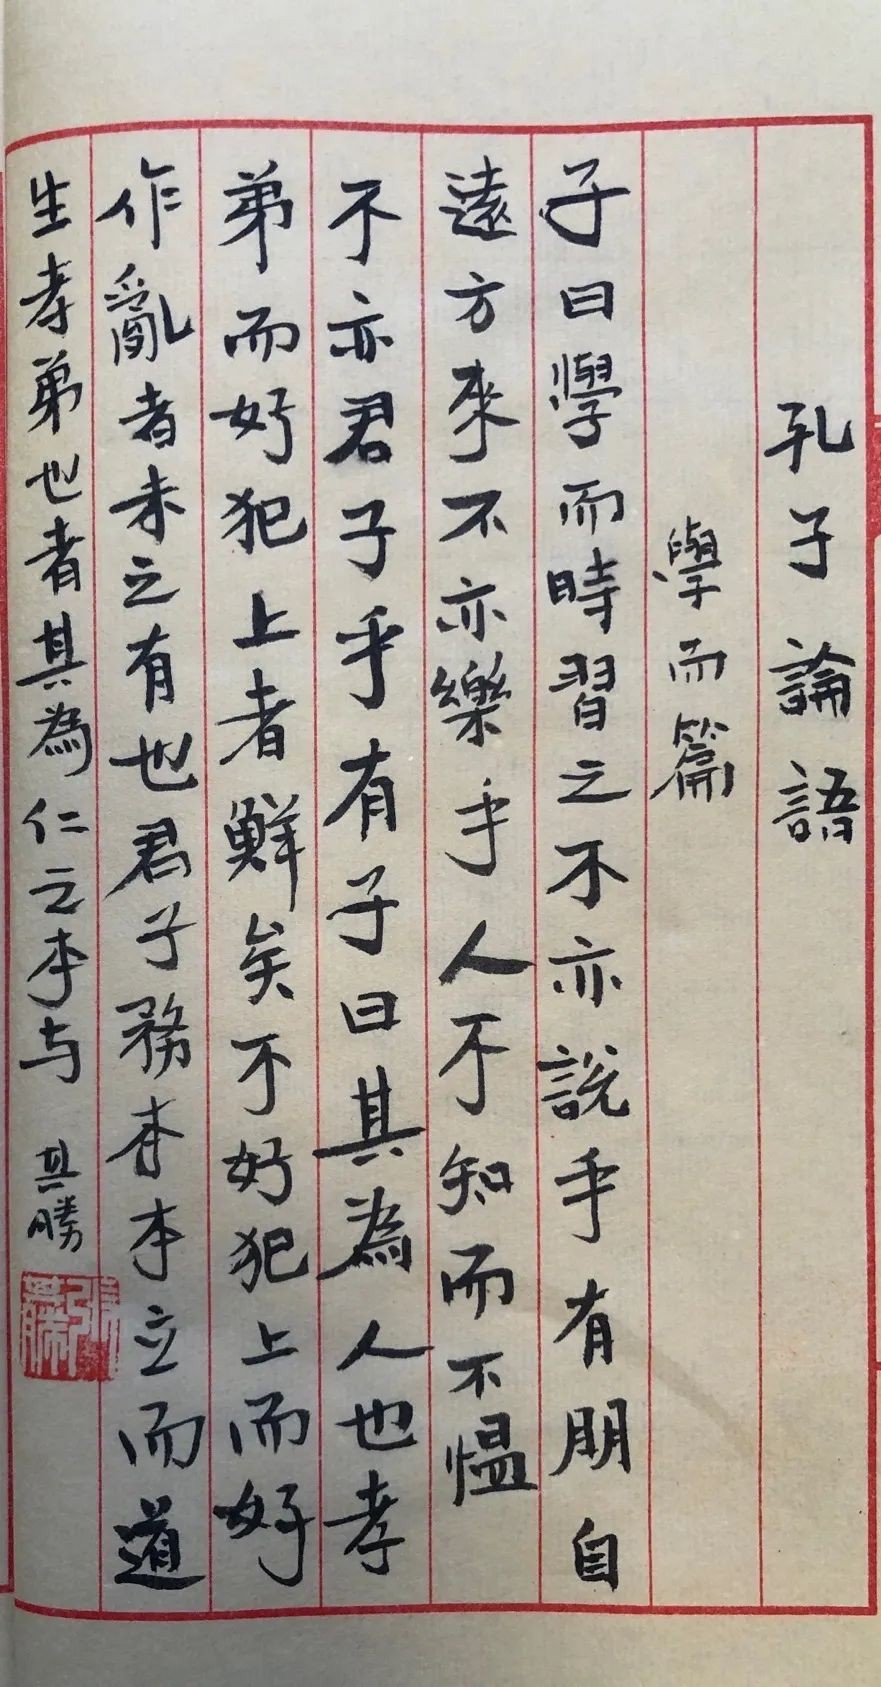 孔子論語
學而篇
子曰學而時習之不亦說乎有朋自
遠方來不亦樂乎人不知而不愠
不亦君子乎有子曰其為人也孝
弟而好犯上者鮮矣不好犯上而好
作亂者未之有也君子務本本立而道
生孝弟也者其為仁之本与 其勝